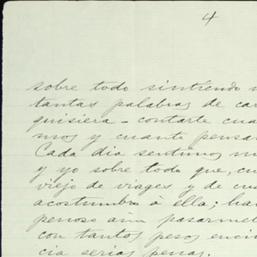 4
sobre todo sintiendo
tantas palabras de
quisiera - contarte
mos y cuanto
Cada dia sentimos
y yo sobre todo que,
viejo de viages y de
acostumbra á ella;
penoso aún
con tantos pesos
cia serias penas.